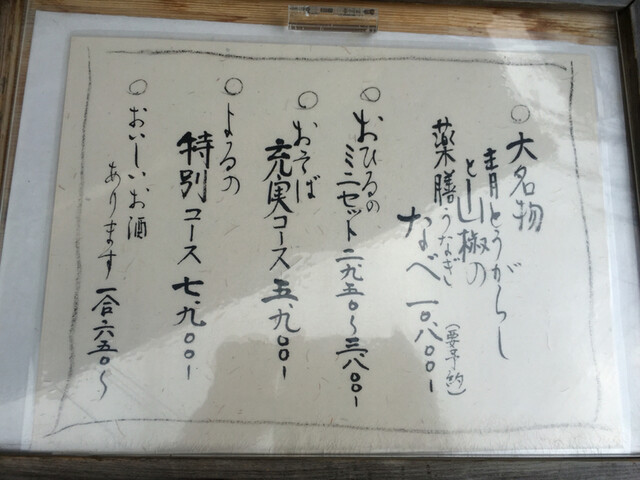 ○大名物
青とうがらし
と山椒の
薬膳・うなぎ
なべ 一〇、八〇〇-
(要予約)
○おひるの
ミニセット 二、九五〇〜三、八〇〇-
○おそば
充実コース 五、九〇〇-
○よるの
特別コース 七、九〇〇-
○おいしいお酒
あります 一合 六五〇〜